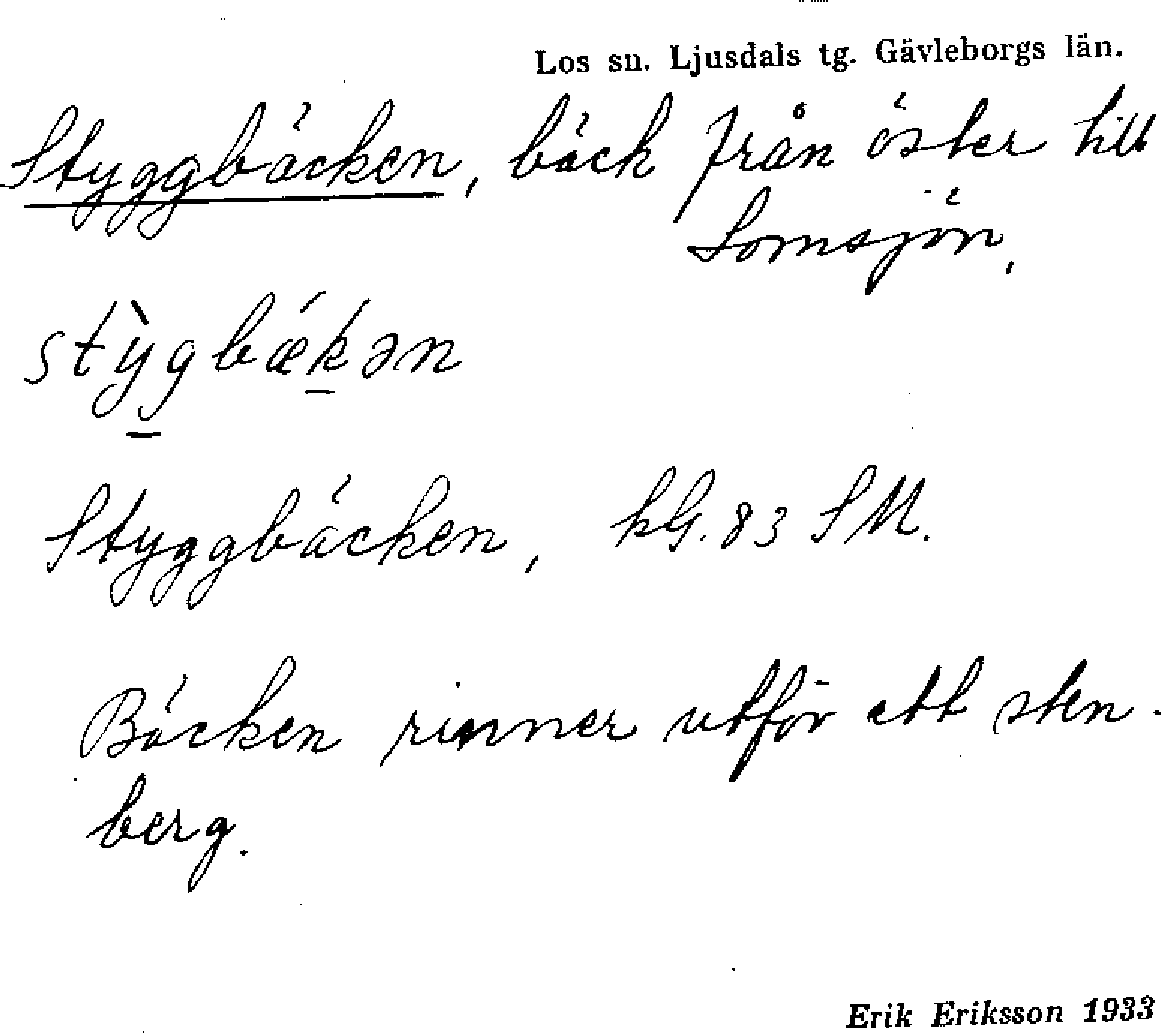 Los sn. Ljusdals tg. Gävleborgs län.
Styggbäcken, bäck från öster till
Lomsjön,
stỳgbǽkən
Styggbäcken, hG. 83 SM.
Bäcken rinner utför ett sten-
berg.
Erik Eriksson 1933